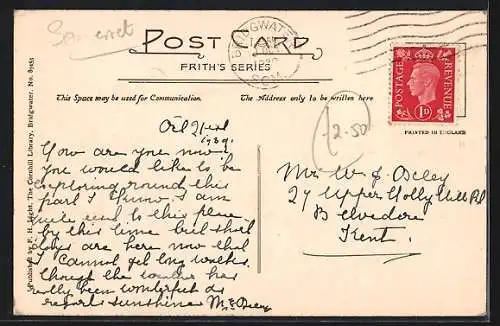 Somerset
POST CARD
FRITH'S SERIES
BRIDGWATER
SOM.
POSTAGE
REVENUE
1D
This Space may be used for Communication.
The Address only to be written here
PRINTED IN ENGLAND
2.50
Published by F. H. Light, The Cornhill Library, Bridgwater. No.
Oct 21st
1939.
How are you now?
you would like to be
exploring round this
part I know. I am
quite used to this place
by this time but shall
days are here now that
I cannot get long walks.
Though the weather has
really been wonderful as
regards sunshine M. E. Oxley
Mr. W. J. Oxley
27 Upper Holly Hill Rd
Belvedere
Kent.